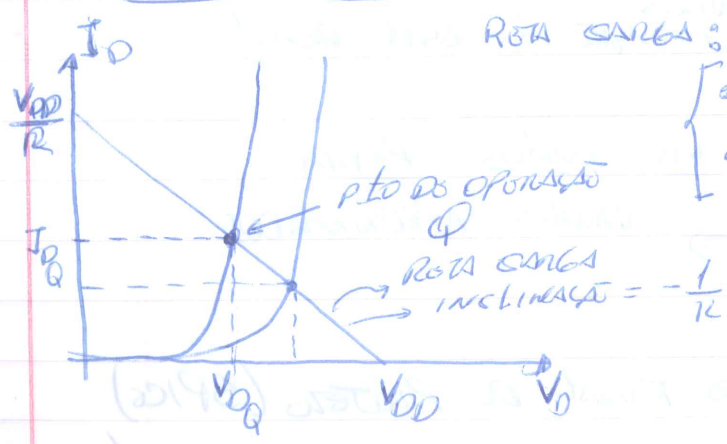 I_D
RETA CARGA :
V_DD
R
PTO DE OPERAÇÃO
Q
I_DQ
RETA CARGA
INCLINAÇÃO = -1/R
V_DQ
V_DD
V_D